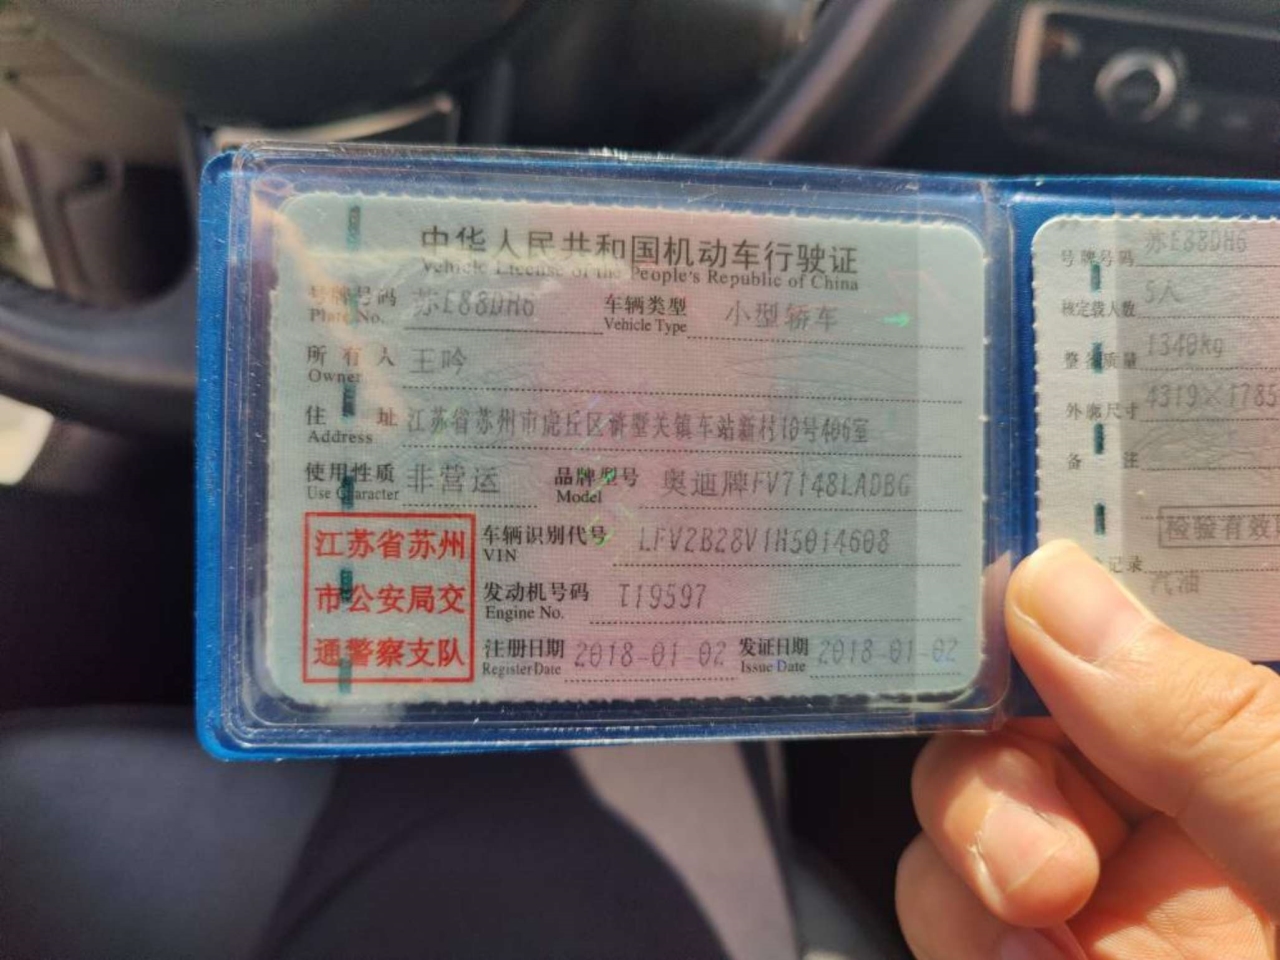 中华人民共和国机动车行驶证
Vehicle License of the People's Republic of China
号牌号码 苏E88DH6 车辆类型 小型轿车
Plate No. Vehicle Type
所有人 王吟
Owner
住址 江苏省苏州市虎丘区浒墅关镇车站新村10号406室
Address
使用性质 非营运 品牌型号 奥迪牌FV7148LADBG
Use Character Model
江苏省苏州
市公安局交
通警察支队
车辆识别代号 LFV2B28V1H5014608
VIN
发动机号码 T19597
Engine No.
注册日期 2018-01-02 发证日期 2018-01-02
Register Date Issue Date
号牌号码 苏E88DH6
核定载人数 5人
整备质量 1340kg
外廓尺寸 4319×1785
备注
检验有效
记录
汽油